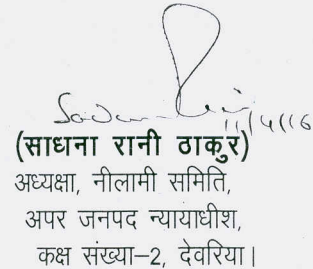 11/4/16
(साधना रानी ठाकुर)
अध्यक्षा, नीलामी समिति,
अपर जनपद न्यायाधीश,
कक्ष संख्या-2, देवरिया।